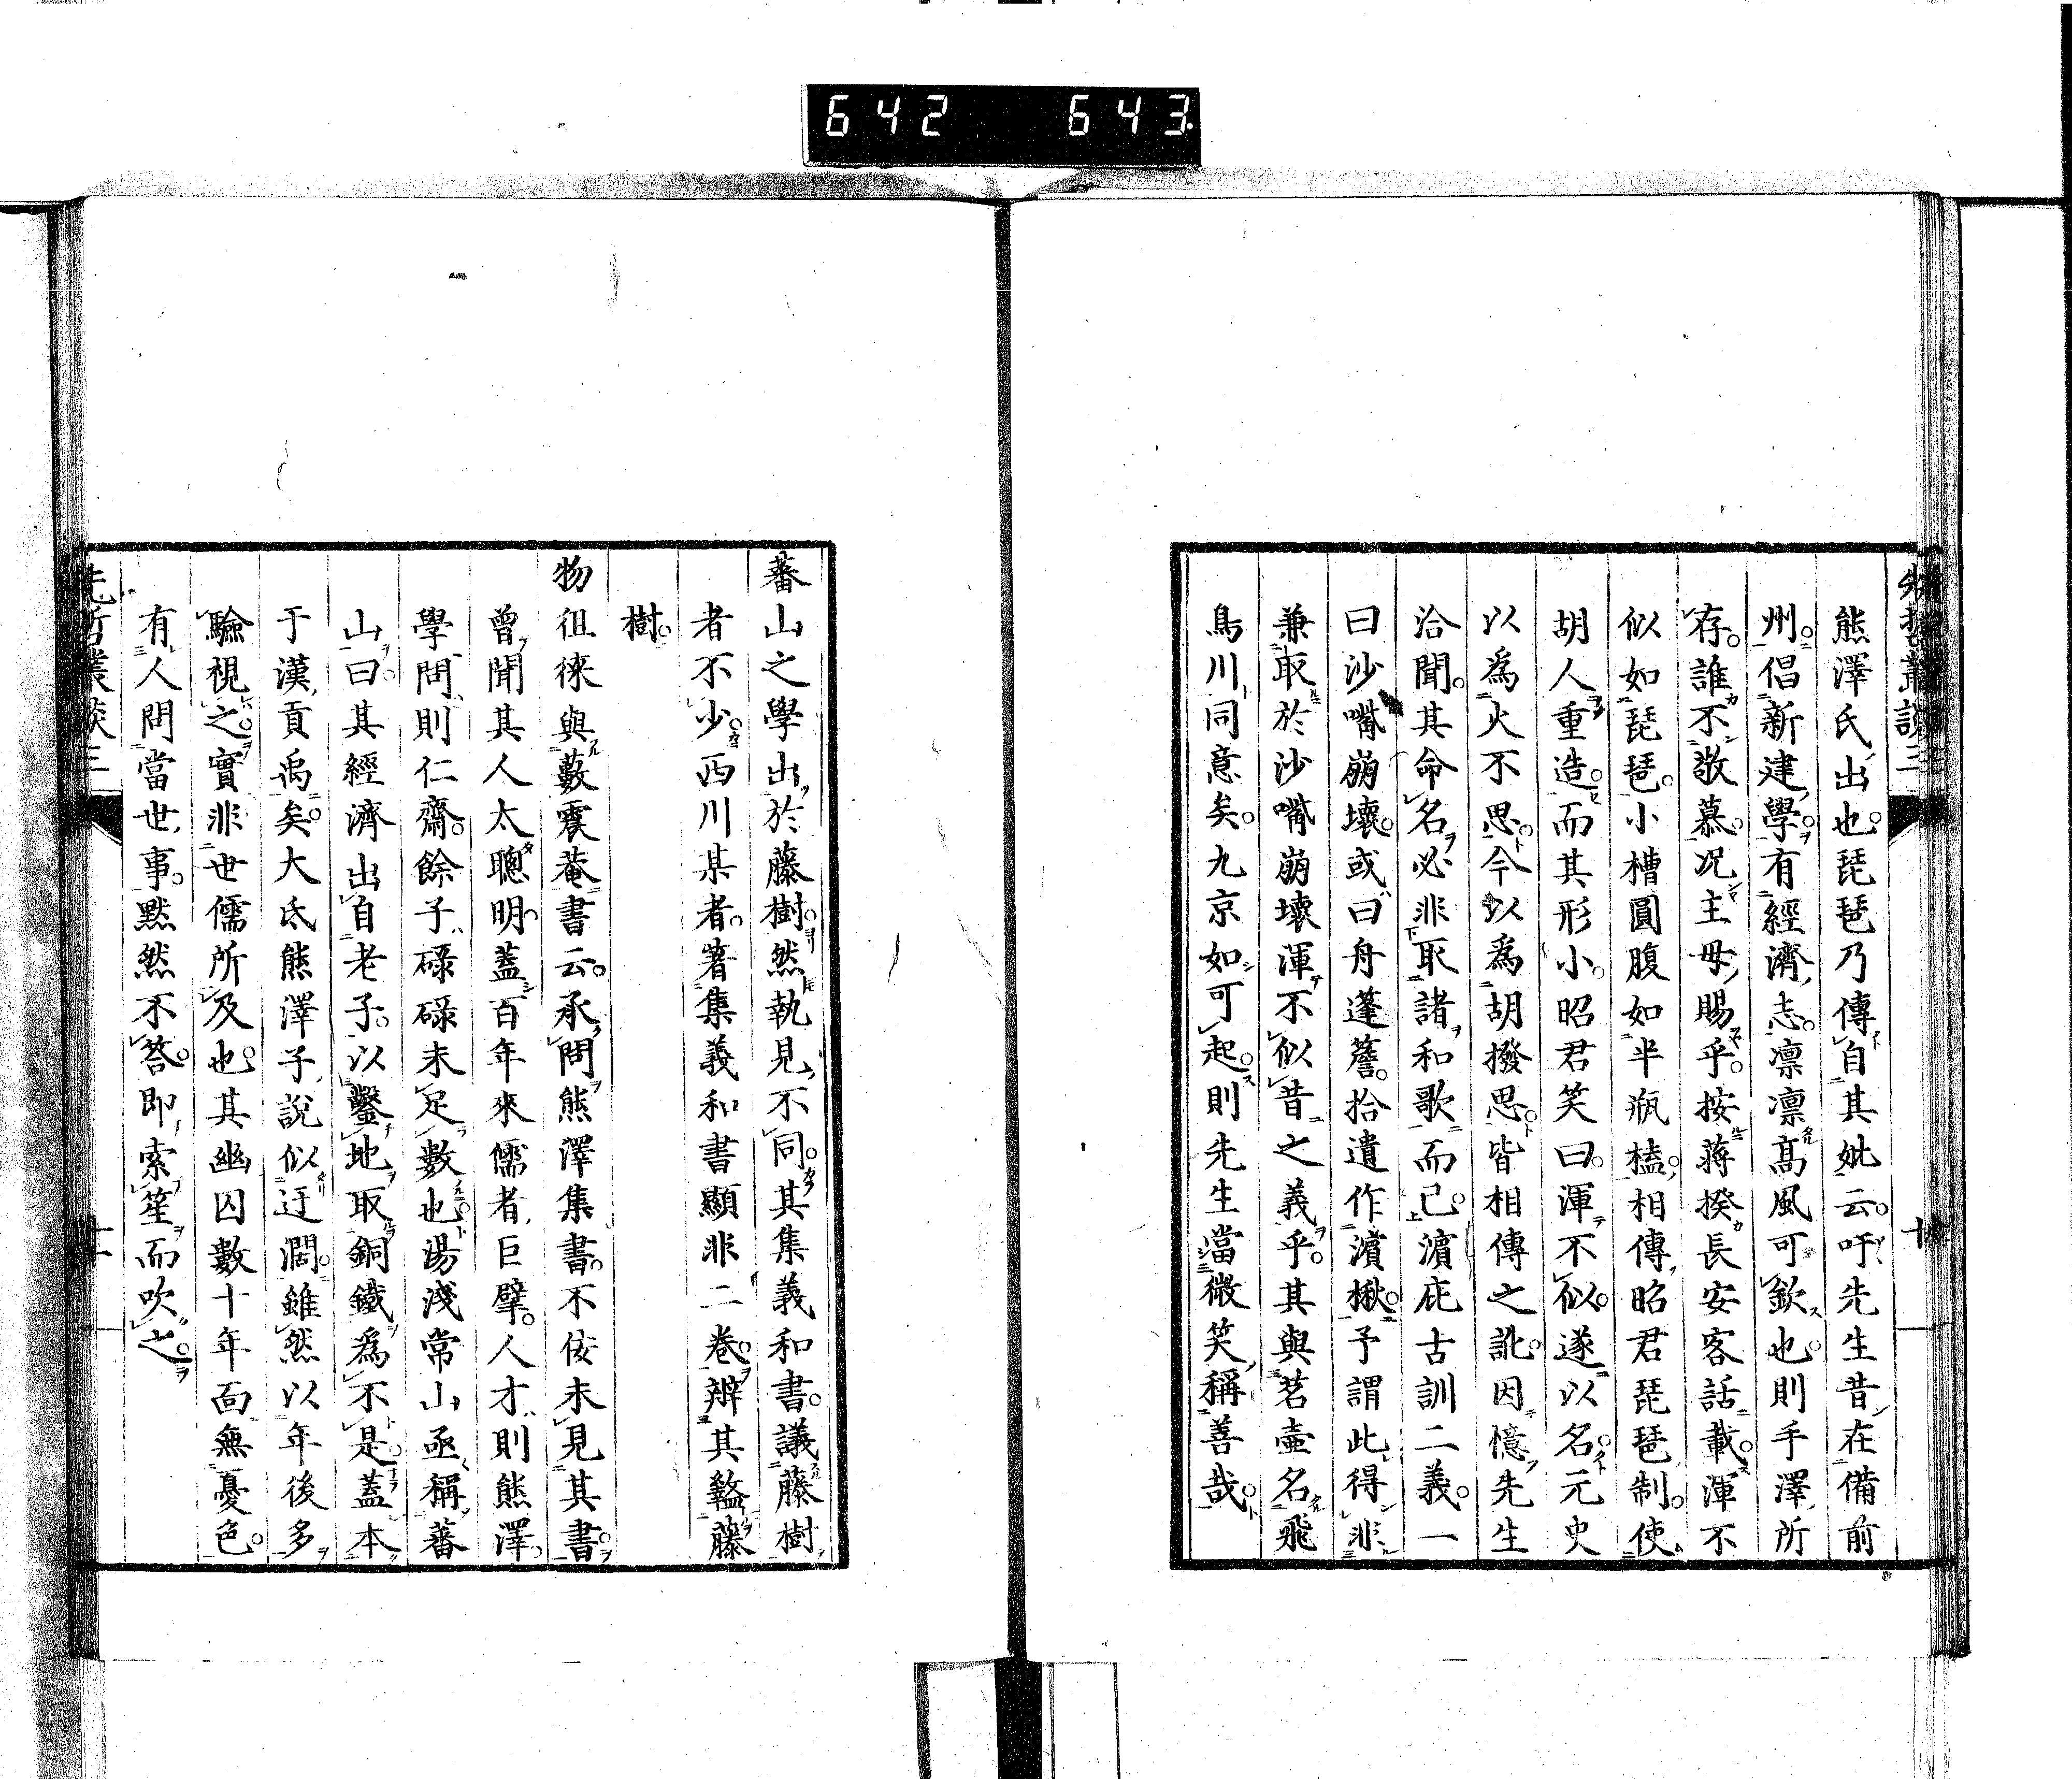 642 643
先哲叢談三
十
熊澤氏出也。琵琶乃傳自其妣云。吁先生昔在備前
州。倡新建學。有經濟志。凛凛高風可欽也。則手澤所
存。誰不敬慕。况主母賜乎。按蔣揆長安客話載。渾不
似如琵琶。小槽圓腹如半瓶榼。相傳昭君琵琶制。使
胡人重造。而其形小。昭君笑曰。渾不似。遂以名。元史
以爲火不思。今以爲胡撥思。皆相傳之訛。因憶先生
洽聞。其命名必非取諸和歌而已。濵庇古訓二義。一
曰沙嘴崩壞。或曰舟蓬簷。拾遺作濵楸。予謂此得非
兼取於沙嘴崩壞渾不似昔之義乎。其與茗壷名飛
鳥川同意矣。九京如可起。則先生當微笑稱善哉。
蕃山之學出於藤樹。然執見不同。其集義和書。議藤樹
者不少。西川某者。著集義和書顯非二卷。辨其盭藤
樹。
物徂徠與藪震菴書云。承問熊澤集書。不佞未見其書。
曾聞其人太聰明。蓋百年來儒者巨擘。人才則熊澤。
學問則仁齋。餘子碌碌未足數也。湯淺常山亟稱蕃
山曰。其經濟出自老子。以鑿地取銅鐵爲不是。蓋本
于漢貢禹矣。大氐熊澤子說似迂濶。雖然以年後多
驗視之。實非世儒所及也。其幽囚數十年。面無憂色。
有人問當世事。默然不答。即索笙而吹之。
先哲叢談三
十一